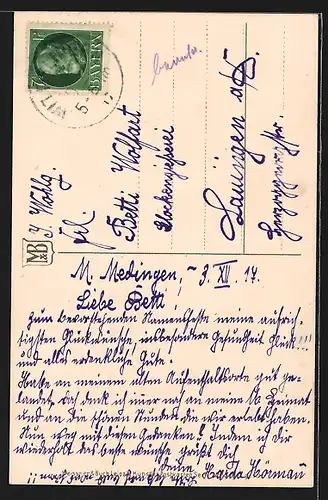 BAYERN
I. Wohlg.
Frl.
Betti Wolfart
Glockengießerei
Lauingen a/D.
M. Medingen, 3. XII. 17.
Liebe Betti!
Zum bevorstehenden Namensfeste meine aufrich-
tigsten Glückwünsche, insbesondere Gesundheit Glück !!!
und alles erdenkliche Gute!
Habe an meinem alten Aufenthaltsorte gut ge-
landet, doch denk ich immer noch an meine Heimat
und an die schönen Stunden die wir erlebt haben.
Nun weg mit diesen Gedanken! Indem ich Dir
wiederholt das beste wünsche grüßt Dich
Deine